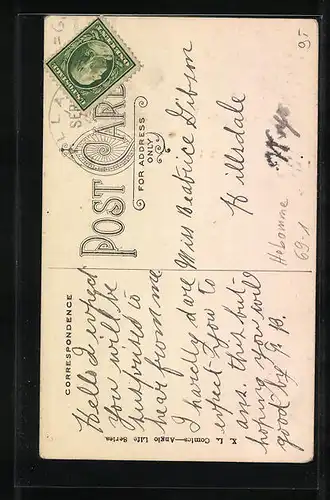 POST CARD
FOR ADDRESS ONLY
Miss Beatrice Gibson
Hillsdale
Wyo
Hebamme
69-1
95
CORRESPONDENCE
Hello I expect
you will be
surprised to
hear from me
I hardly dare
expect you to
ans. this but
hoping you will
good by G. B.
K. L. Comics—Anglo Life Series.